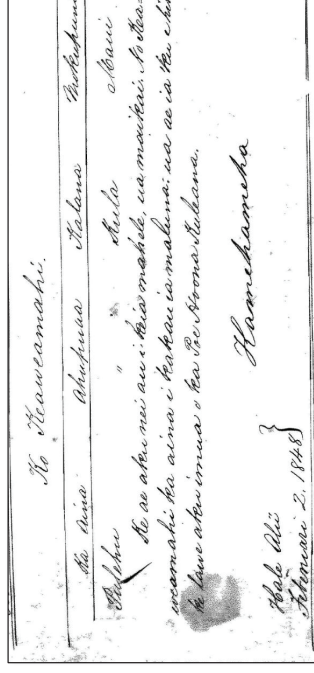 Ko Keaweamahi.
Ka aina Ahupuaa Kalana Mokupuni
Pulehu " Kula Maui
Ke ae aku nei au i keia mahele, ua maikai. No Kea-
weamahi ka aina i kakau ia maluna: ua ae ia ku e hiki
ke lawe aku imua o ka Poe Hoona Kuleana.
Kamehameha
Hale Alii
Feberuari 2. 1848